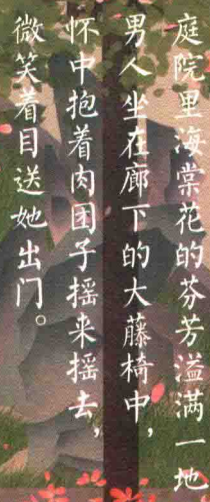 庭院里海棠花的芬芳溢满一地
男人坐在廊下的大藤椅中，
怀中抱着肉团子摇来摇去，
微笑着目送她出门。